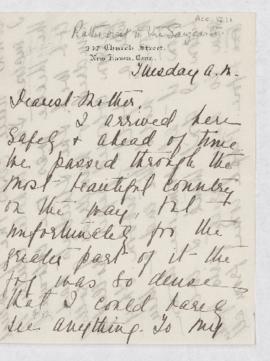 315 Church Street.
New Haven, Conn.
Tuesday A.M.
Dearest Mother,
I arrived here
safely & ahead of time
we passed through the
most beautiful country
on the way, but
unfortunately for the
greater part of it the
fog was so dense
that I could barely
see anything. To my